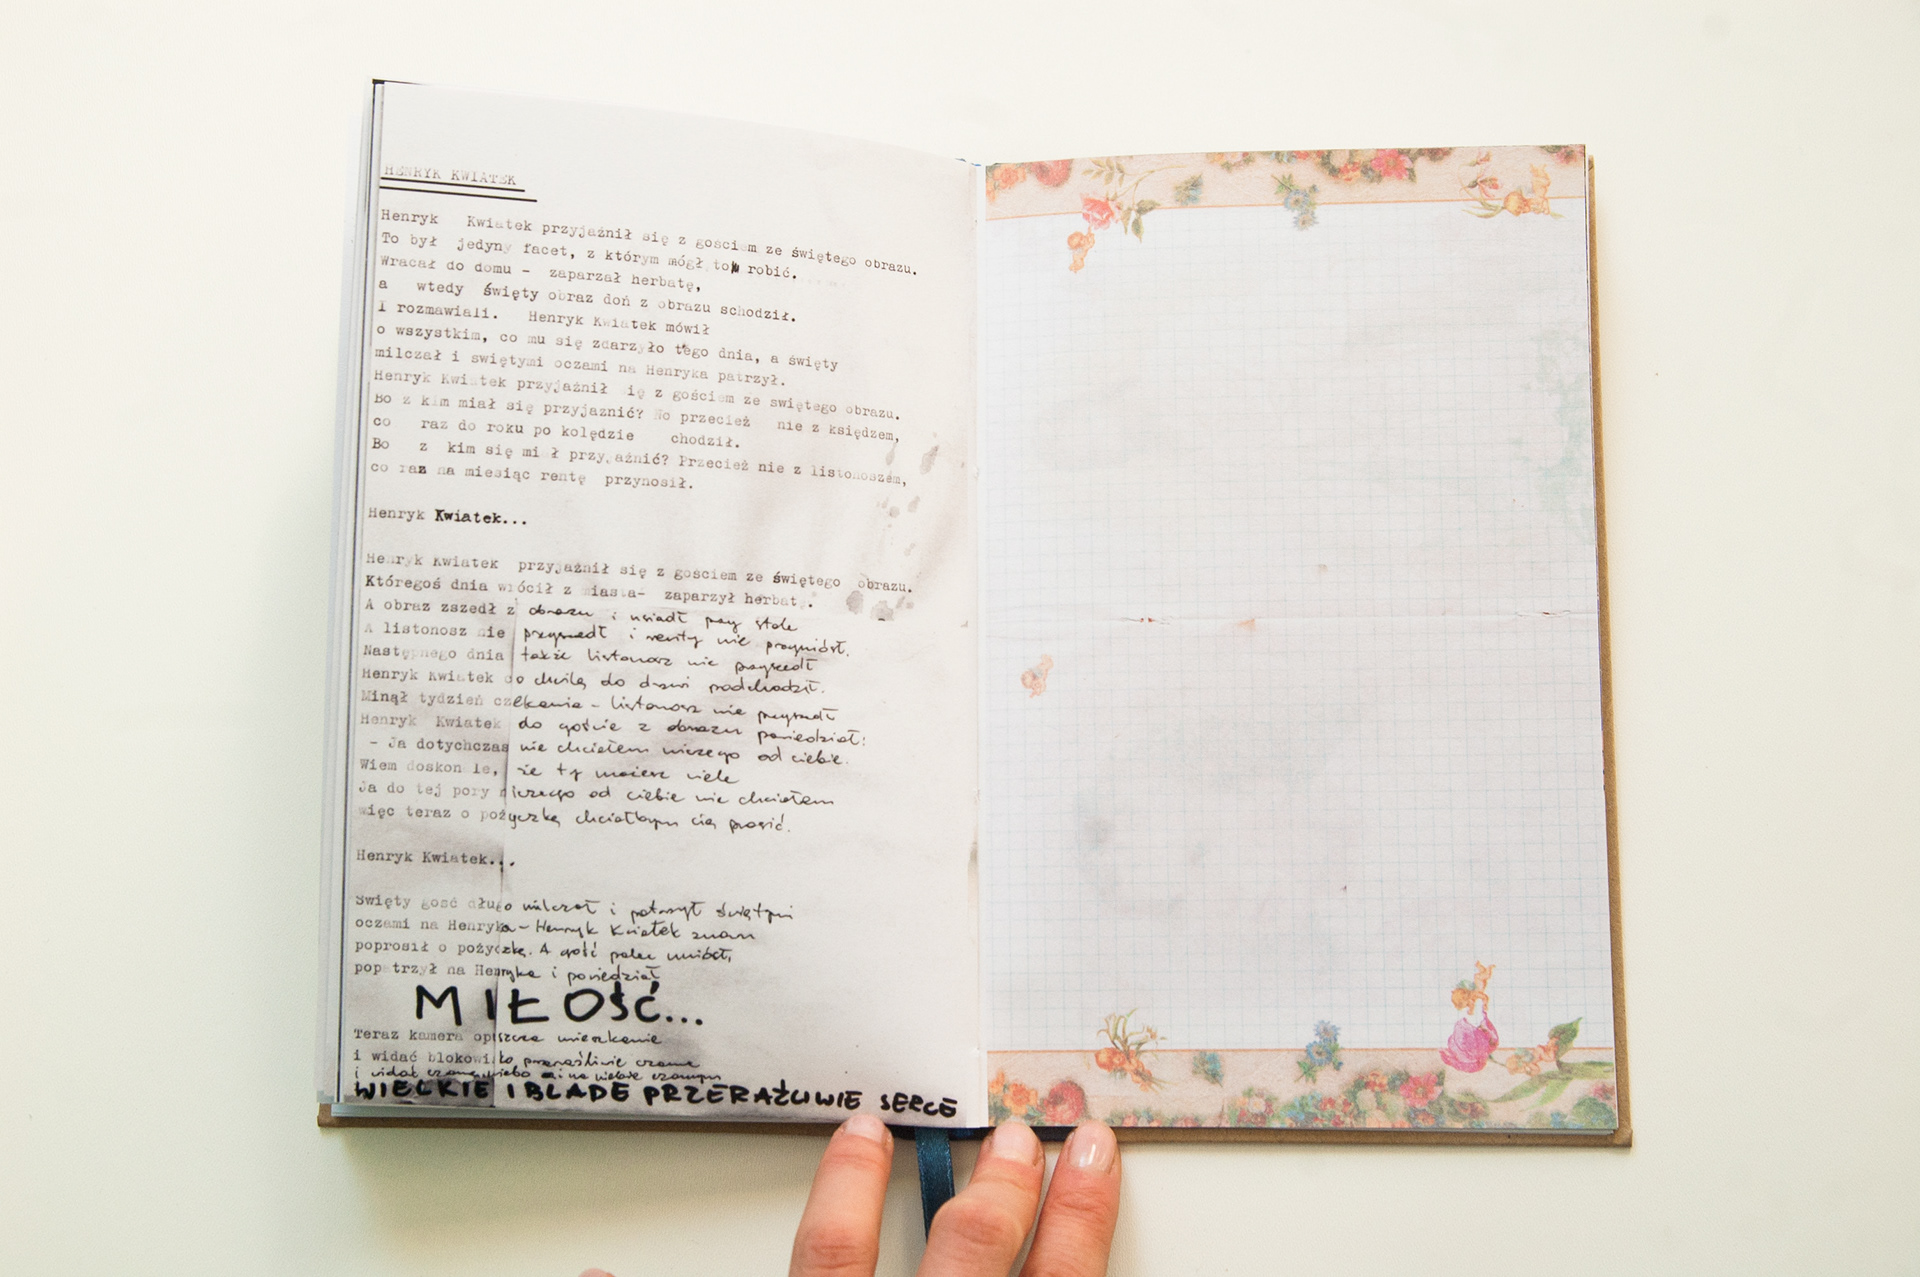 HENRYK KWIATEK
Henryk Kwiatek przyjaźnił się z gościem ze świętego obrazu.
To był jedyny facet, z którym mógł to robić.
Wracał do domu - zaparzał herbatę,
a wtedy święty obraz doń z obrazu schodził.
I rozmawiali. Henryk Kwiatek mówił
o wszystkim, co mu się zdarzyło tego dnia, a święty
milczał i swiętymi oczami na Henryka patrzył.
Henryk Kwiatek przyjaźnił się z gościem ze swiętego obrazu.
Bo z kim miał się przyjaznić? No przecież nie z księdzem,
co raz do roku po kolędzie chodził.
Bo z kim się miał przyjaźnić? Przecież nie z listonoszem,
co raz na miesiąc rentę przynosił.
Henryk Kwiatek...
Henryk Kwiatek przyjaźnił się z gosciem ze świętego obrazu.
Któregoś dnia wrócił z miasta- zaparzył herbatę.
A obraz zszedł z obrazu i usiadł przy stole
A listonosz nie przyszedł i renty nie przyniósł.
Następnego dnia także listonosz nie przyszedł
Henryk Kwiatek co chwilę do drzwi podchodził.
Minął tydzień czekania - listonosz nie przyszedł
Henryk Kwiatek do gościa z obrazu powiedział:
- Ja dotychczas nie chciałem niczego od ciebie.
Wiem doskonale, że ty możesz wiele
Ja do tej pory niczego od ciebie nie chciałem
więc teraz o pożyczkę chciałbym cię prosić.
Henryk Kwiatek...
Swięty gość długo milczał i patrzył świętymi
oczami na Henryka - Henryk Kwiatek znowu
poprosił o pożyczkę. A gość palec uniósł,
popatrzył na Henryka i powiedział
MIŁOŚĆ...
Teraz kamera opuszcza mieszkanie
i widać blokowisko przeraźliwie czarne
i widać czarne niebo a na niebie czarnym
WIELKIE I BLADE PRZERAŹLIWIE SERCE